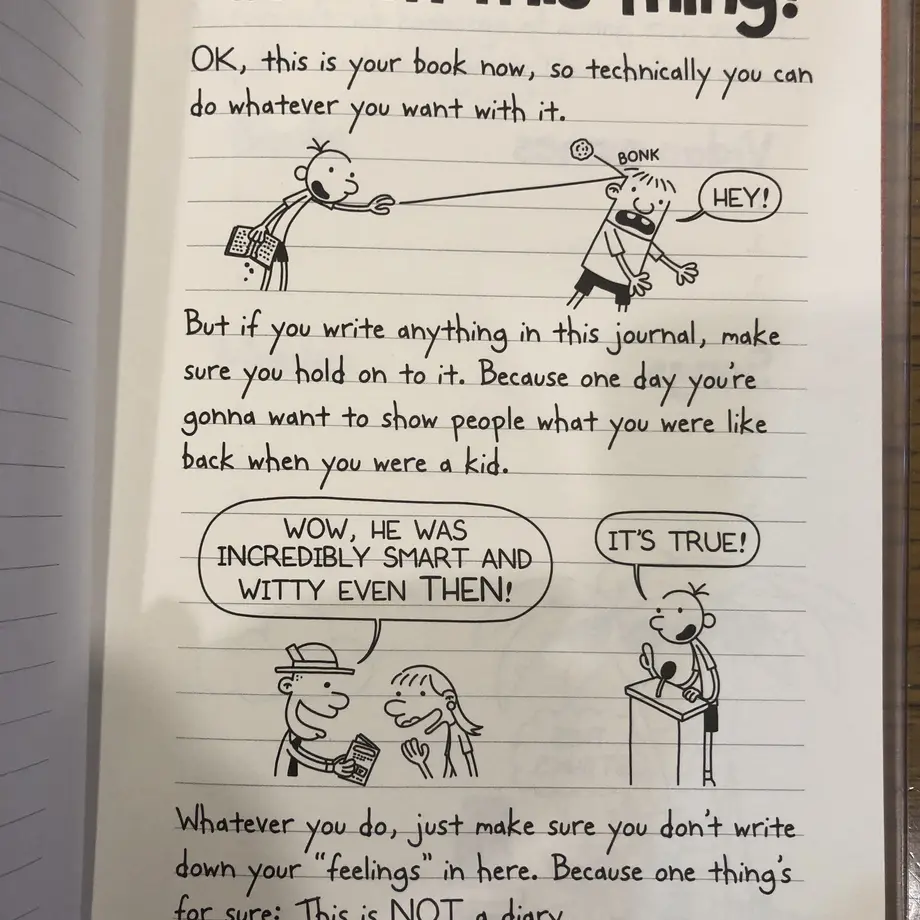 Thing!
OK, this is your book now, so technically you can
do whatever you want with it.
BONK
HEY!
But if you write anything in this journal, make
sure you hold on to it. Because one day you're
gonna want to show people what you were like
back when you were a kid.
WOW, HE WAS
INCREDIBLY SMART AND
WITTY EVEN THEN!
IT'S TRUE!
Whatever you do, just make sure you don't write
down your "feelings" in here. Because one thing's
for sure: This is NOT a diary